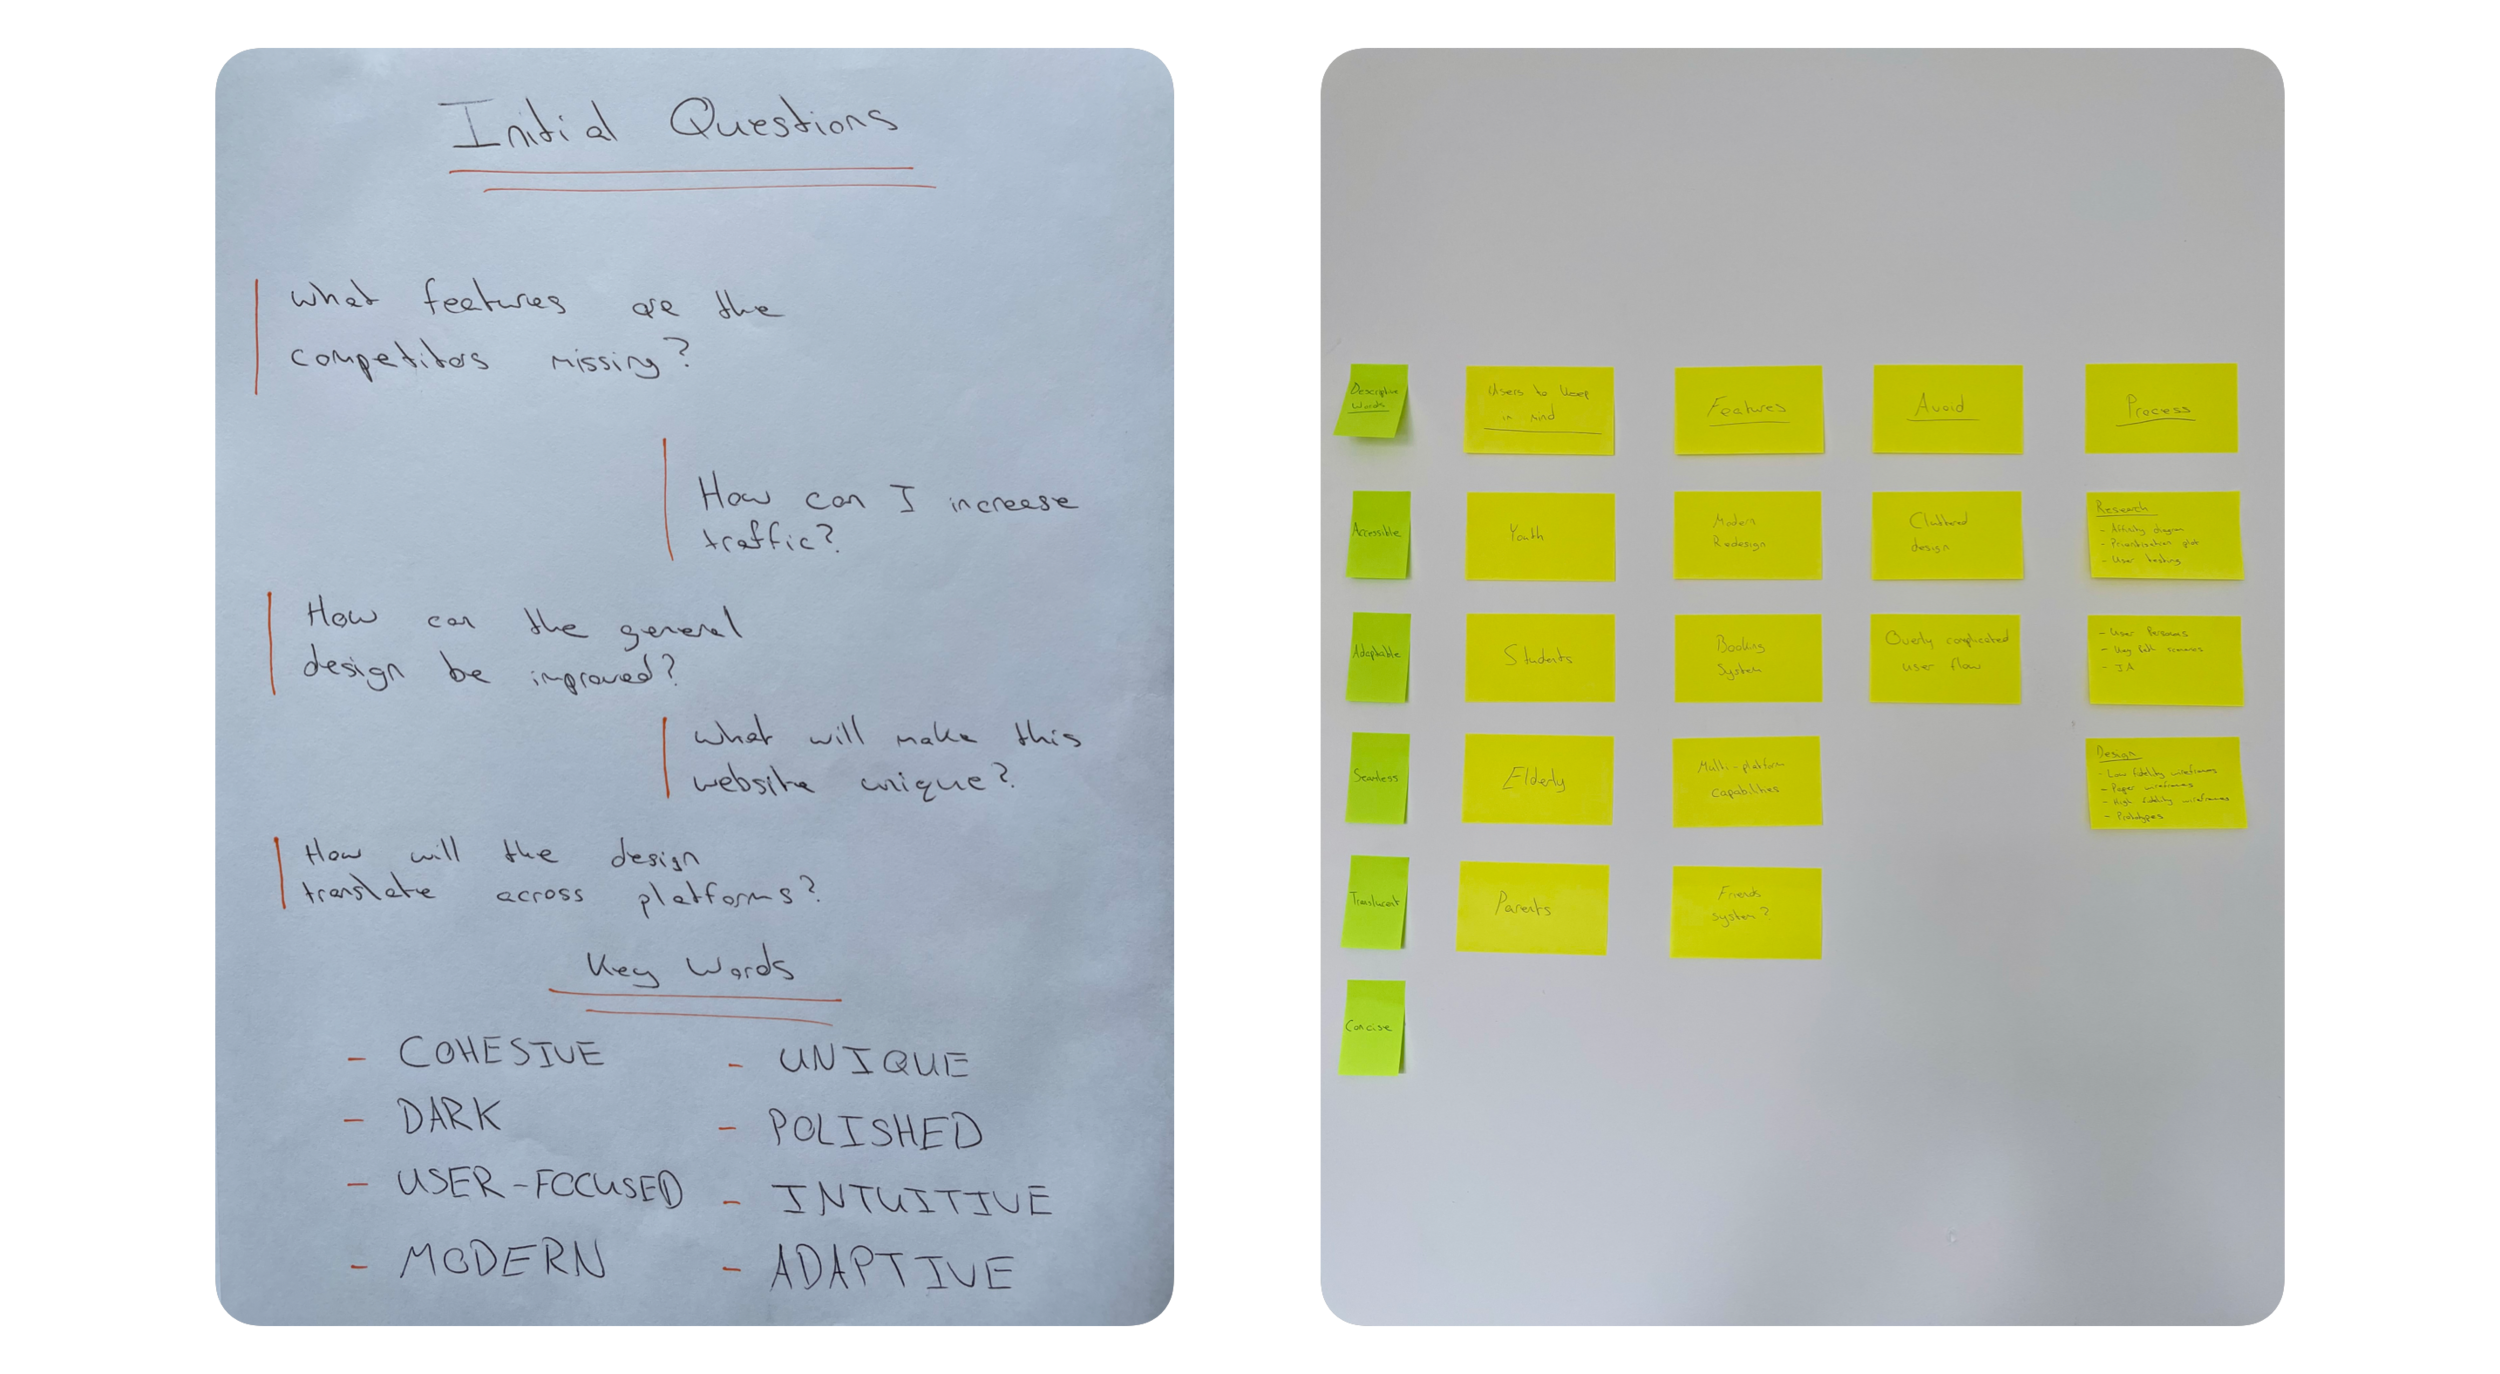 Initial Questions
What features are the
competitors missing?
How can I increase
traffic?
How can the general
design be improved?
What will make this
website unique?
How will the design
translate across platforms?
Key Words
- COHESIVE
- DARK
- USER-FOCUSED
- MODERN
- UNIQUE
- POLISHED
- INTUITIVE
- ADAPTIVE
Descriptive
Words
Accessible
Adaptable
Seamless
Translucent
Concise
Users to keep
in mind
Youth
Students
Elderly
Parents
Features
Modern
Redesign
Booking
System
Multi-platform
capabilities
Friends
system?
Avoid
Cluttered
design
Overly complicated
user flow
Process
Research
- Affinity diagram
- Prioritisation plot
- User testing
- User Personas
- scenarios
- IA
Design
- Low fidelity wireframes
- Paper wireframes
- High fidelity wireframes
- Prototypes